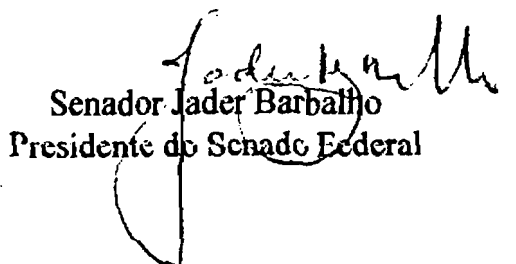 Senador Jader Barbalho
Presidente do Senado Federal